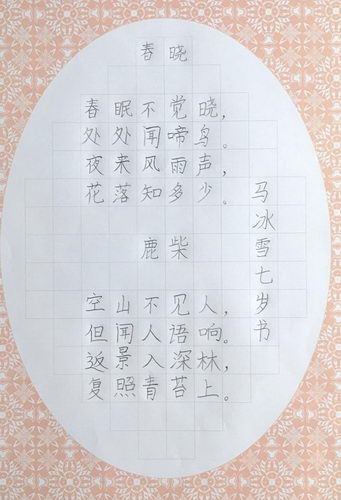 春晓
春眠不觉晓，
处处闻啼鸟。
夜来风雨声，
花落知多少。
鹿柴
空山不见人，
但闻人语响。
返景入深林，
复照青苔上。
马冰雪七岁书